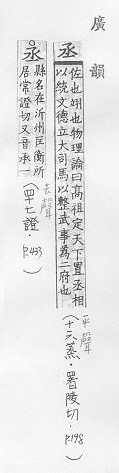 廣韻
丞
佐也翊也物理論曰高祖定天下置丞相
以統文德立大司馬以整武事爲二府也
平聲
(十六蒸·署陵切·P.198)
丞
縣名在沂州匡衡所
居常證切又音承一
去聲
(四十七證·P.433)